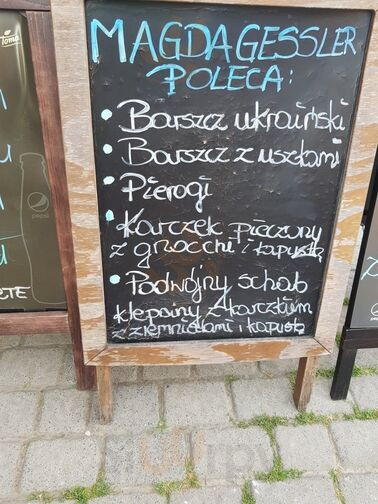 MAGDA GESSLER
POLECA:
• Barszcz ukraiński
• Barszcz z uszkami
• Pierogi
• Karczek pieczony
z gnocchi i kapustą
• Podwójny schab
klepany z karczkiem
z ziemniakami i kapustą
Toma
pepsi